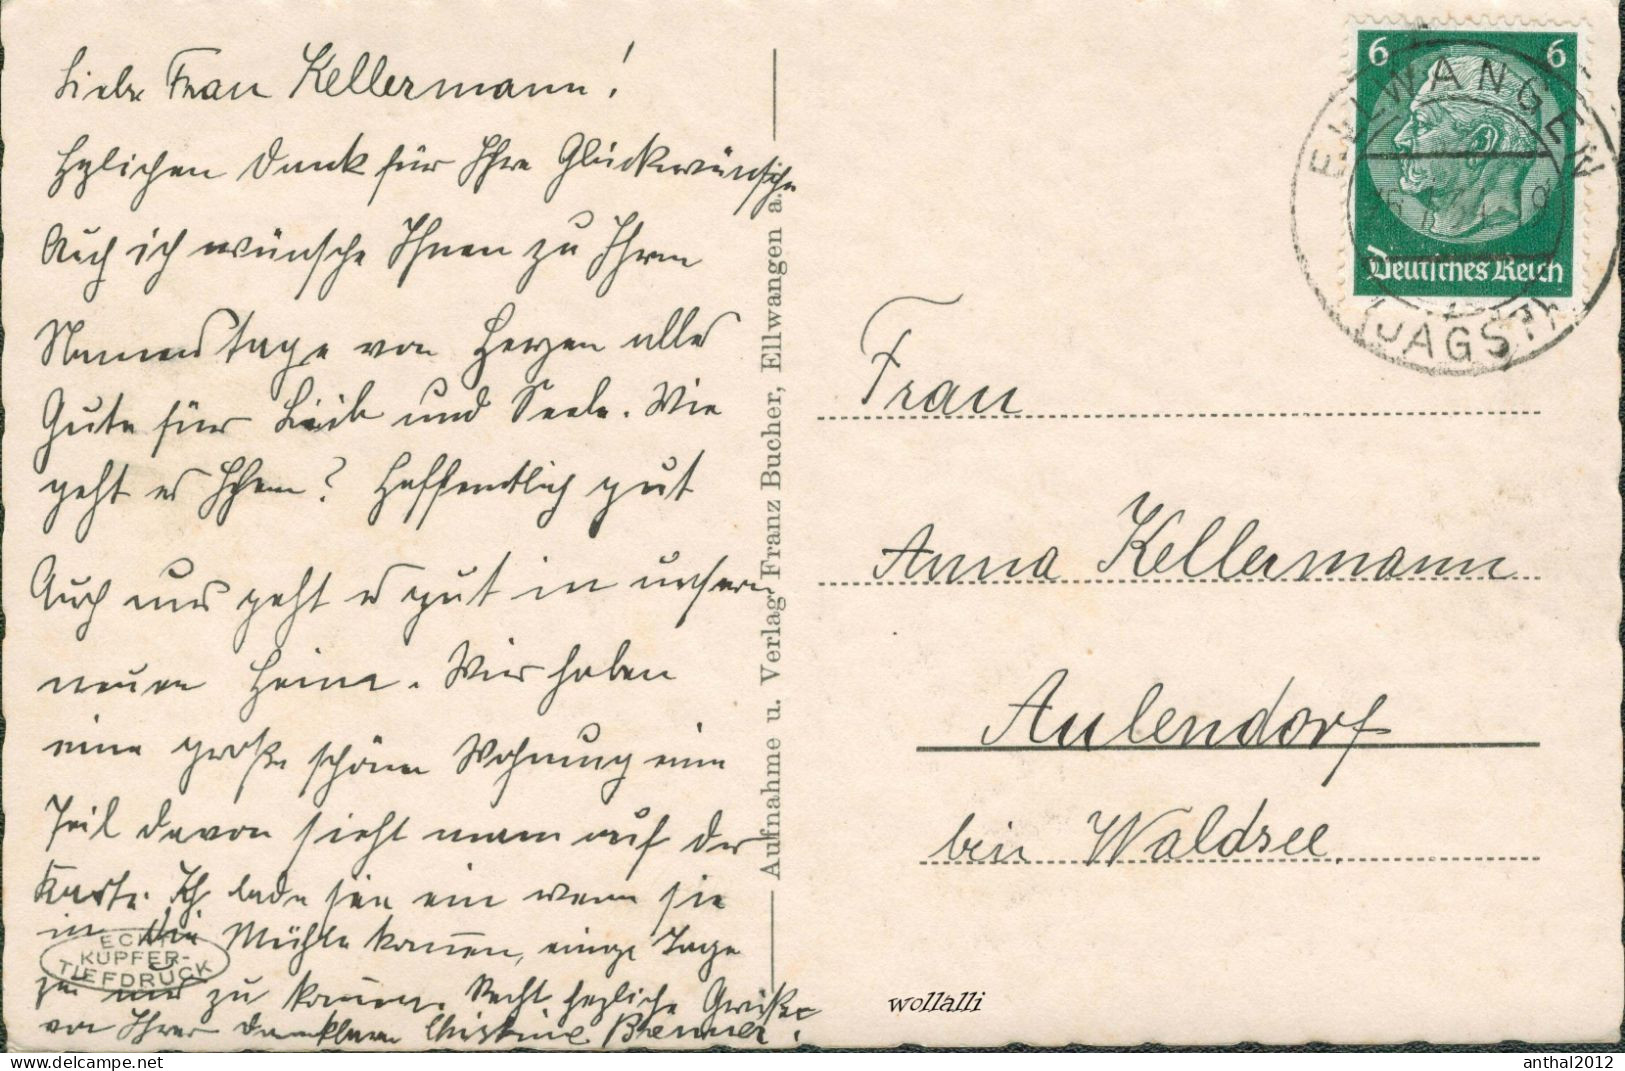 Liebe Frau Kellermann!
Hzlichen Dank für Ihre Glückwünsche
Auch ich wünsche Ihnen zu Ihrem
Namenstage von Herzen alles
Gute für Leib und Seele. Wie
geht es Ihnen? Hoffentlich gut
Auch uns geht es gut in unserm
neuen Heime. Wir haben
eine große schöne Wohnung eine
Teil davon sieht man auf der
Karte. Ich lade sie ein wenn sie
in die Mühle kommen, einige Tage
zu uns zu kommen. Recht herzliche Grüße
von Ihrer dankbaren Christine Brenner.
ECHT
KUPFER-
TIEFDRUCK
Aufnahme u. Verlag Franz Bucher, Ellwangen a.
6 6
Deutsches Reich
ELLWANGEN
(JAGST)
Frau
Anna Kellermann
Aulendorf
bei Waldsee.
wollalli
delcampe.net
anthal2012